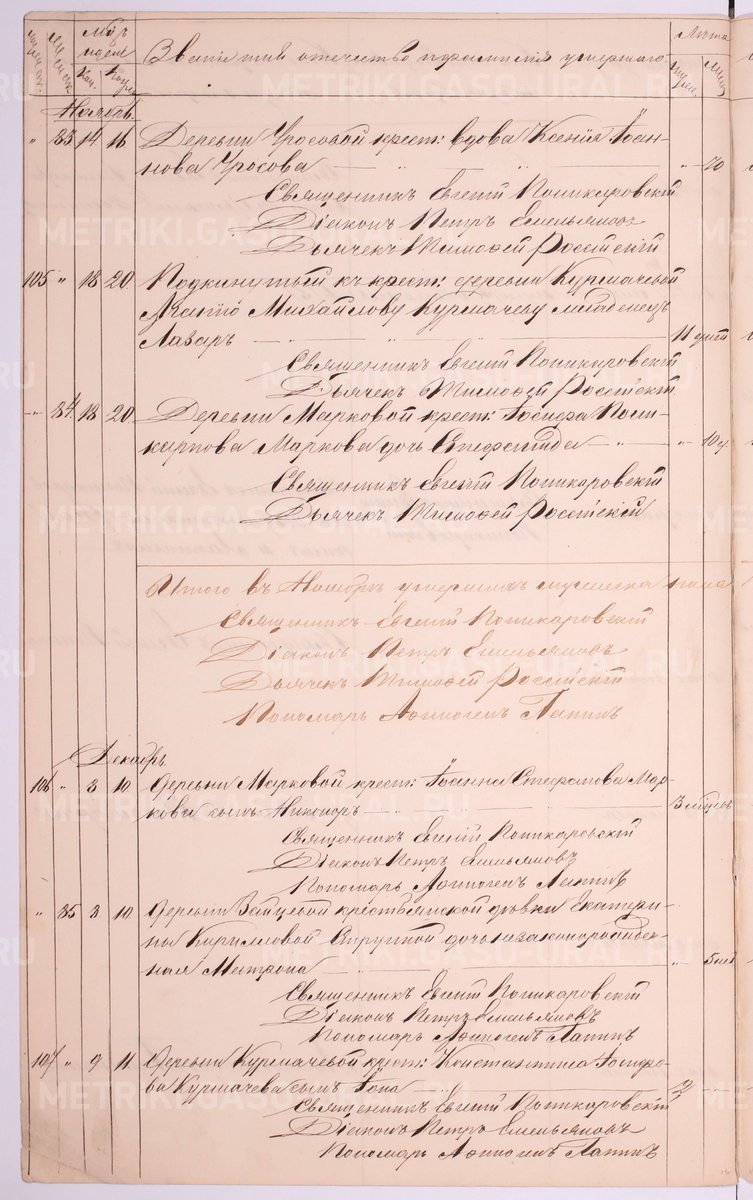 Мѣсяцъ и день
Званіе имя отечество и фамилія умершаго.
Лѣта
муж. жен.
Ноябрь
" 83 14 16 Деревни Уросовой крест: вдова Ксенія Іоан-
нова Уросова " 70
Священникъ Евгеній Поликаровскій
Діаконъ Петръ Емельяновъ
Дьячекъ Тимоѳей Россійскій
105 " 18 20 Подкинутый къ крест: деревни Курмачевой
Михайлову Курмачеву младенецъ
Лазарь 11 дней
Священникъ Евгеній Поликаровскій
Дьячекъ Тимоѳей Россійскій
" 84 18 20 Деревни Марковой крест: Іосифа Поли-
карпова Маркова дочь Степанида " 10
Священникъ Евгеній Поликаровскій
Дьячекъ Тимоѳей Россійскій
Итого въ Ноябрѣ умершихъ мужеска пола
Священникъ Евгеній Поликаровскій
Діаконъ Петръ Емельяновъ
Дьячекъ Тимоѳей Россійскій
Пономарь Аѳиногенъ Лапинъ
Декабрь
106 " 3 10 Деревни Марковой крест: Іоанна Стефанова Мар-
кова сынъ Никоноръ 3 мѣсяц
Священникъ Евгеній Поликаровскій
Діаконъ Петръ Емельяновъ
Пономарь Аѳиногенъ Лапинъ
" 85 3 10 Деревни Зайцевой крестьянской дѣвки Екатери-
ны Кириловой дочь незаконорожден-
ная Матрона " 5
Священникъ Евгеній Поликаровскій
Діаконъ Петръ Емельяновъ
Пономарь Аѳиногенъ Лапинъ
107 " 9 11 Деревни Курмачевой крест: Константина Іосифо-
ва Курмачева сынъ Іона 2
Священникъ Евгеній Поликаровскій
Діаконъ Петръ Емельяновъ
Пономарь Аѳиногенъ Лапинъ
METRIKI.GASO-URAL.RU